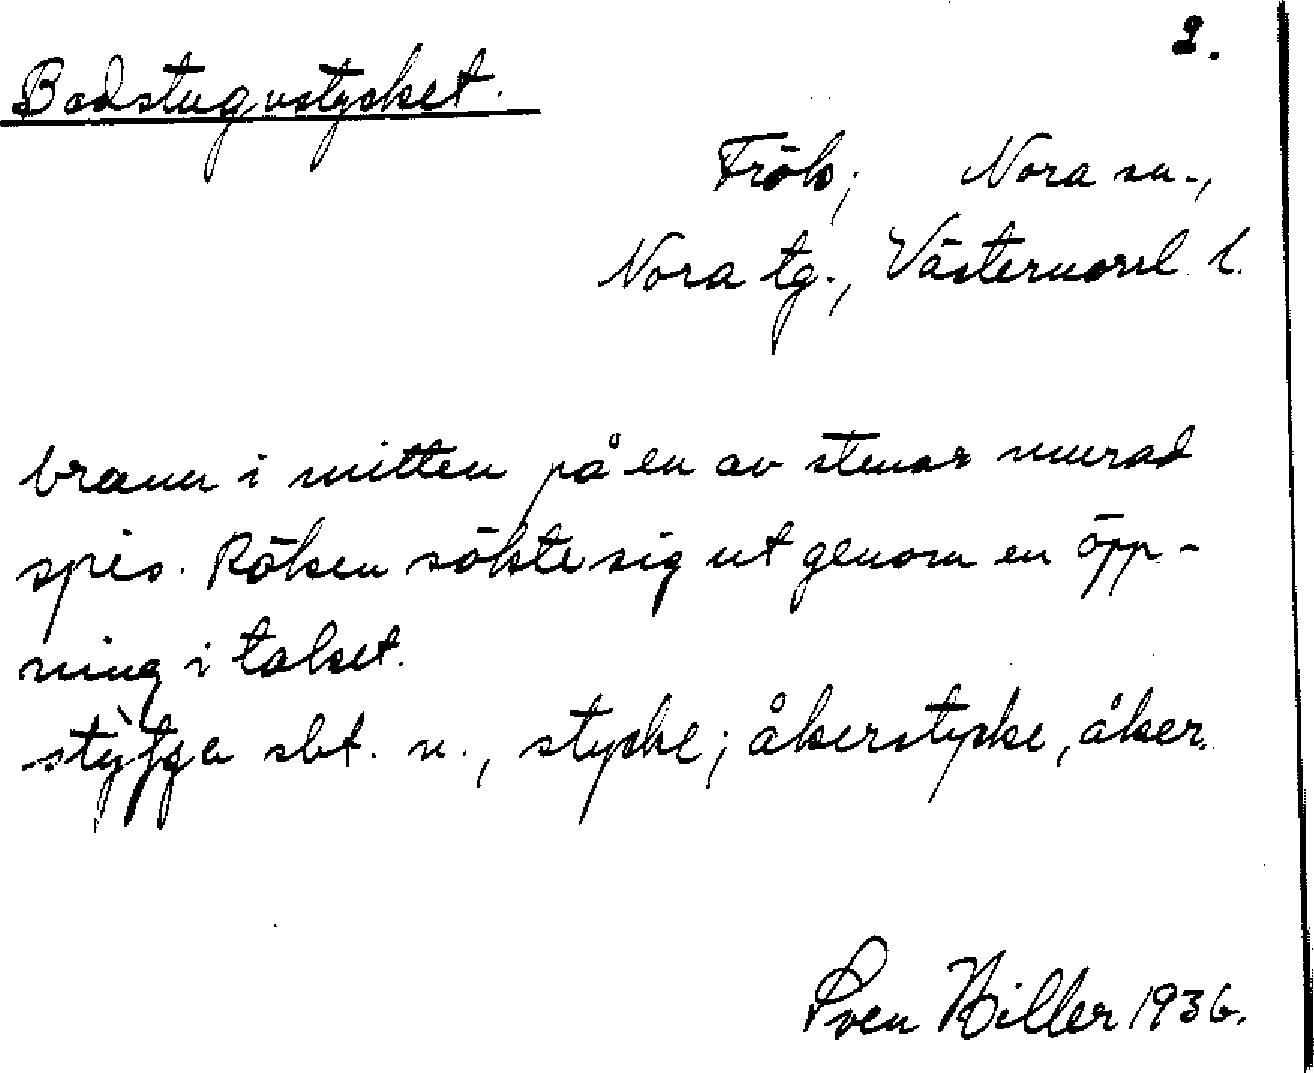 2.
Badstugustycket.
Frök; Nora sn.,
Nora tg., Västernorrl. l.
brann i mitten på en av stenar murad
spis. Röken sökte sig ut genom en öpp-
ning i taket.
sbt. n., stycke; åkerstycke, åker.
Sven Hiller 1936.